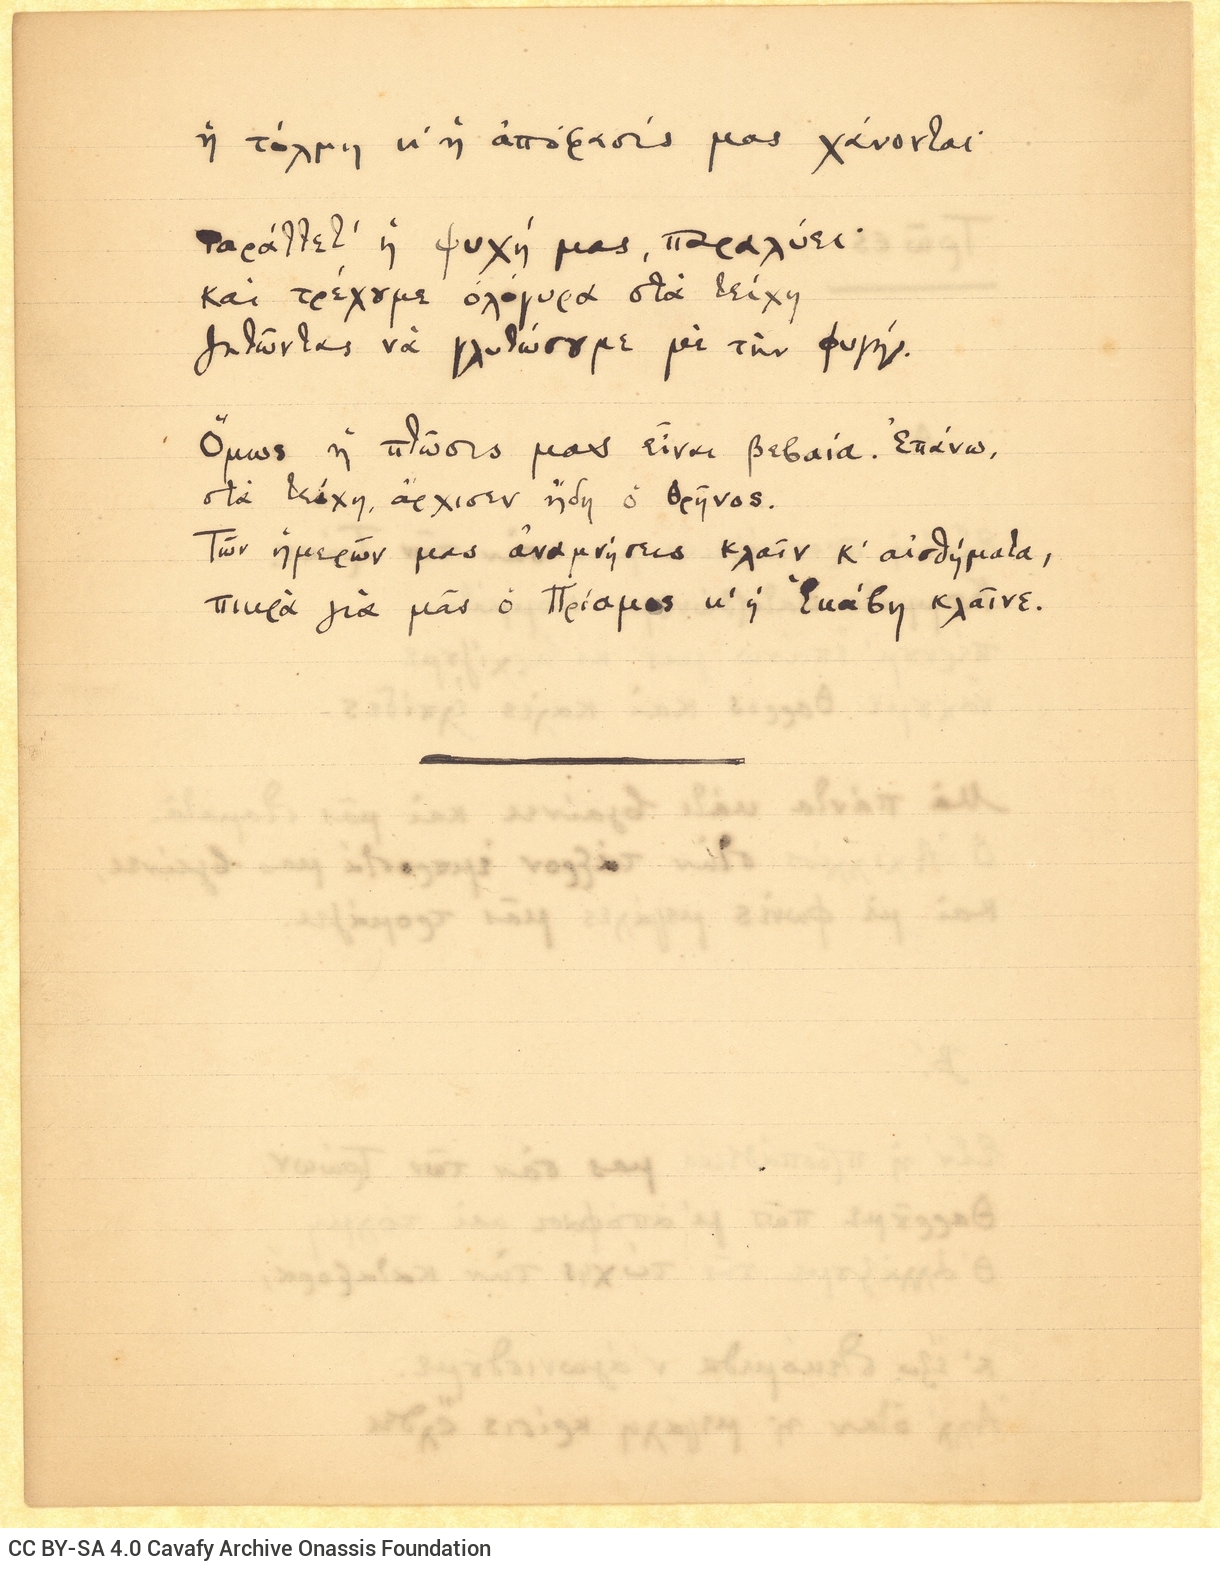 ἡ τόλμη κ' ἡ ἀπόφασίς μας χάνονται·
ταράττετ' ἡ ψυχή μας, παραλύει·
καὶ τρέχουμε ὁλόγυρα στὰ τείχη
ζητῶντας νὰ γλυτώσουμε μὲ τὴν φυγήν.
Ὅμως ἡ πτῶσις μας εἶναι βεβαία. Ἐπάνω,
στὰ τείχη, ἄρχισεν ἤδη ὁ θρῆνος.
Τῶν ἡμερῶν μας ἀναμνήσεις κλαῖν κ' αἰσθήματα,
πικρὰ γιὰ μᾶς ὁ Πρίαμος κ' ἡ Ἑκάβη κλαῖνε.
CC BY-SA 4.0 Cavafy Archive Onassis Foundation